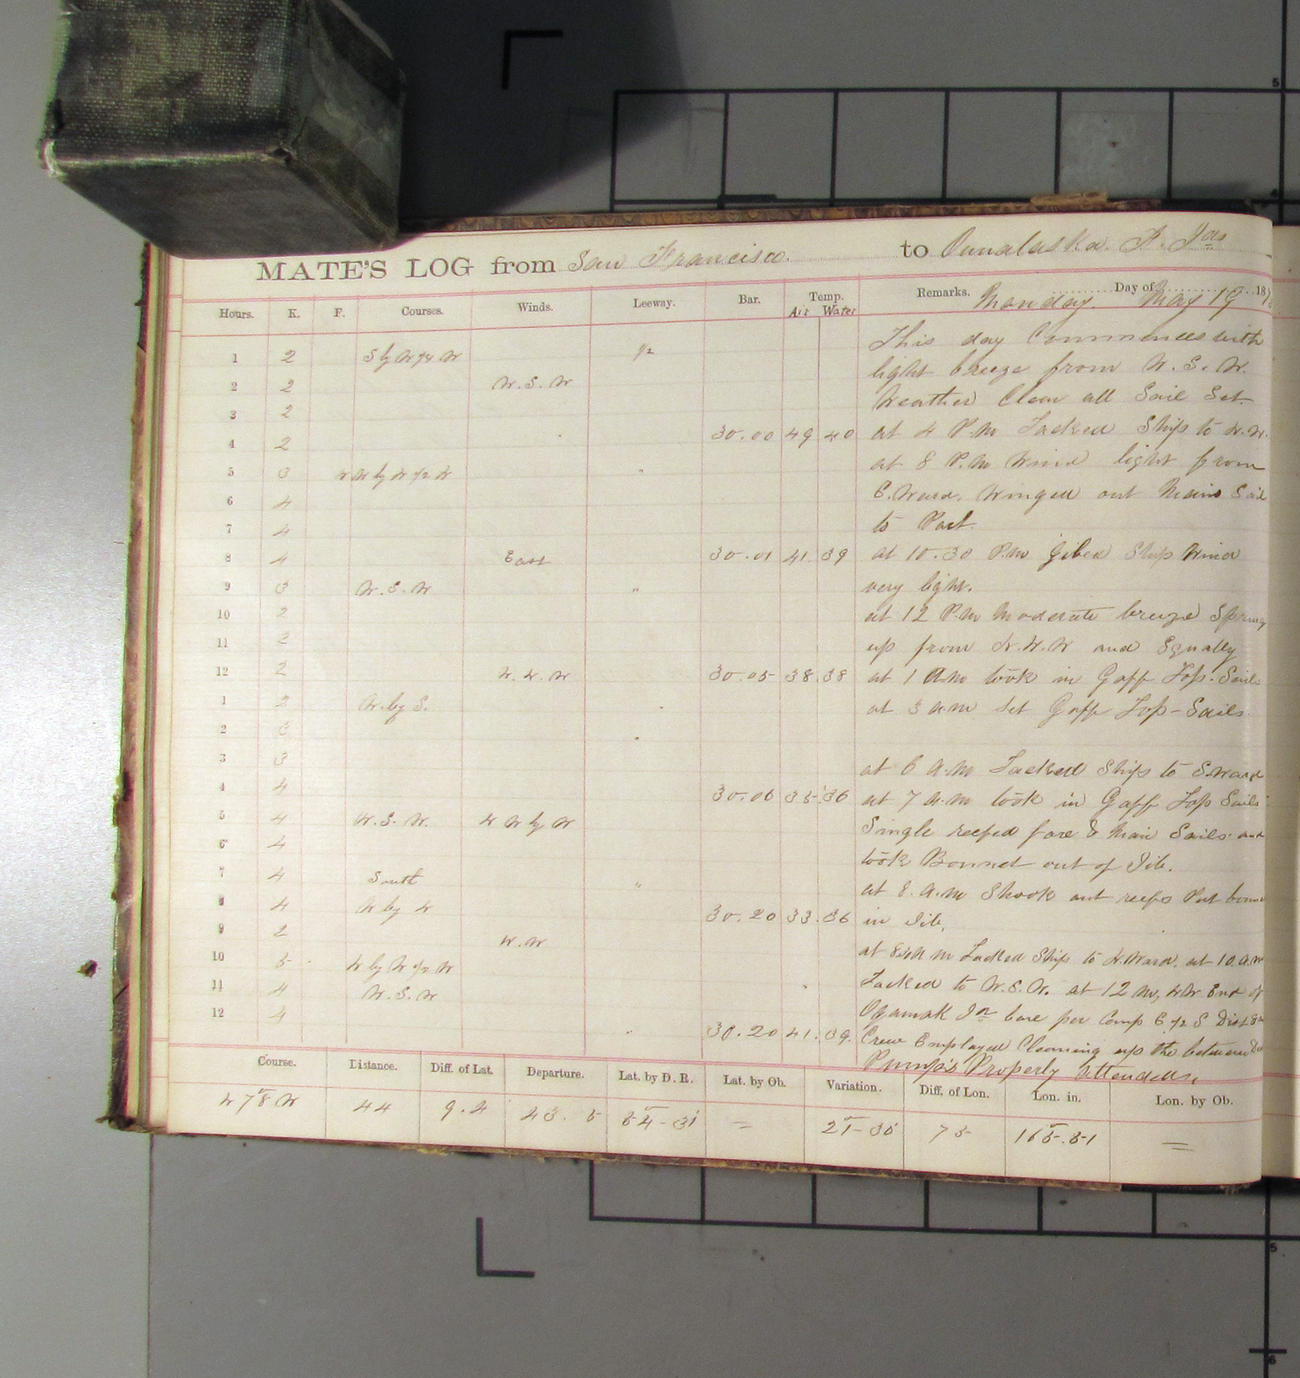 MATE'S LOG from San Francisco. to Ounalaska. A. Ids
Hours. K. F. Courses. Winds. Leeway. Bar. Temp. Remarks. Day of 18
Air Water Monday. May 19
This day Commences with
1 2 S by W 1/4 W 1/2
light breeze from W. S. W.
2 2 W. S. W
Weather Clear all Sail Set.
3 2
4 2 30.00 49 40 at 4 P.M Tacked Ship to N.W.
5 3 N W by W 1/2 W " at 8 P.M Wind light from
6 4 E.Ward. Winged out Main Sail
7 4 to Port.
8 4 East 30.01 41. 39 at 10.30 P.M Gibed Ship Wind
9 3 W. S. W " very light.
10 2 at 12 P.M moderate breeze Spring
11 2 up from N.N.W and Squally
12 2 N. N. W 30.05 38. 38 at 1 A.M took in Gaff Top-Sails
1 2 W. by S. " at 3 A.M Set Gaff Top-Sails
2 3 "
3 3 at 6 A.M Tacked Ship to S.Ward
4 4 30.06 35 36 at 7 A.M took in Gaff Top Sails
5 4 W. S. W. N W by W Single reefed fore & Main Sails and
6 4 took Bonnet out of Jib.
7 4 South " at 8. A.M Shook out reefs Put bonnet
8 4 W by N 30.20 33. 36 in Jib.
9 2 N. W
at A M Tacked Ship to N.Ward. at 10. A.M
10 5 N by W 1/2 W
11 4 W. S. W " Tacked to W.S.W. at 12 M, NW End of
12 4 Ogamok Id bore per Comp E 1/2 S Dist
" 30.20 41. 39. Crew Employed Cleaning up the between
Pumps Properly attended.
Course. Distance. Diff. of Lat. Departure. Lat. by D. R. Lat. by Ob. Variation. Diff. of Lon. Lon. in. Lon. by Ob.
N 78 W 44 9.2 43. 5 54-31 = 21-30 75 165.51 =